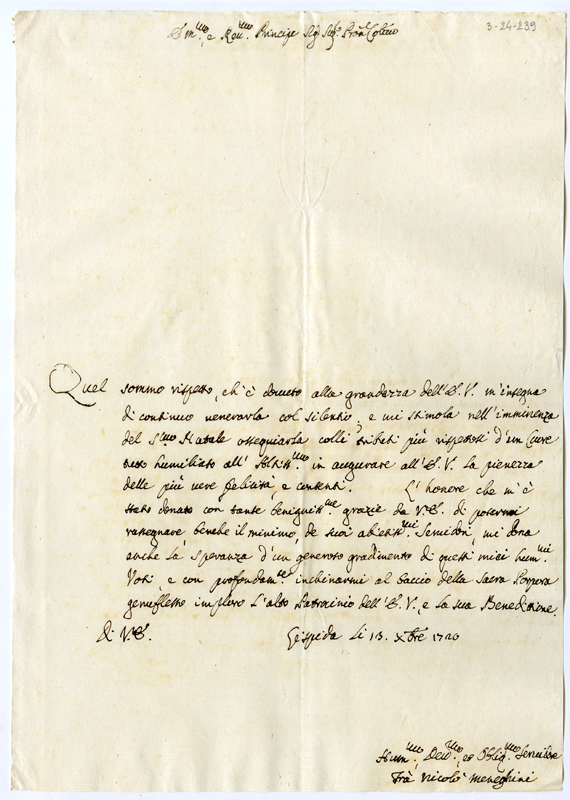 Em.mo e Rev.mo Principe Sig.
3-24-239
Quel sommo rispetto, ch'è dovuto alla grandezza dell'E.V. m'insegna
di continuo venerarla col silentio, e mi stimola nell'imminenza
del S.mo Natale ossequiarla colli tributi più rispettosi d'un Cuore
tutto humiliato all' Altiss.mo in augurare all'E.V. la pienezza
delle più vere felicità, e contenti. L'honore che m'è
stato donato con tante benigniss.me grazie da V.E. di potermi
rassegnare, benche il minimo, de suoi Servidori, mi dona
anche la speranza d'un generoso gradimento di questi miei hum.mi
Voti, e con profondam.te inchinarmi al baccio della Sacra Porpora
genuflesso imploro l'alto Patrocinio dell'E.V. e la sua Benedizione.
Di V.E. Li 13. Xbre 1720
Hum.mo, Dev.mo, et Oblig.mo Servidore
Frà Nicolò Meneghini